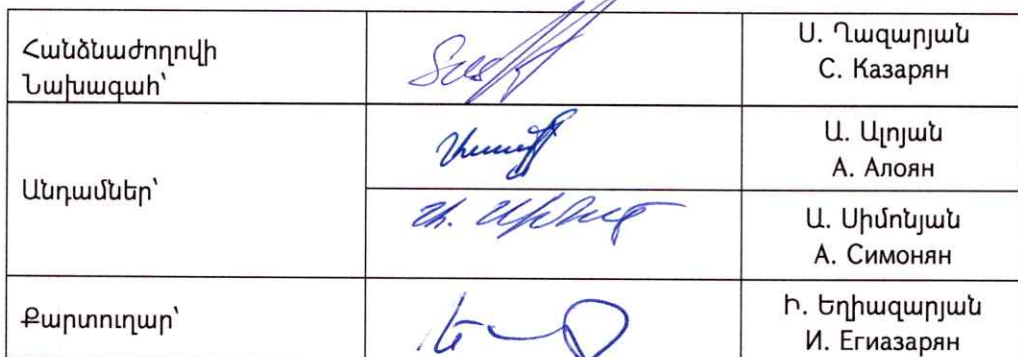 Հանձնաժողովի
Նախագահ՝
Ս. Ղազարյան
С. Казарян
Անդամներ՝
Ա. Ալոյան
А. Алоян
Ա. Սիմոնյան
А. Симонян
Քարտուղար՝
Ի. Եղիազարյան
И. Егиазарян